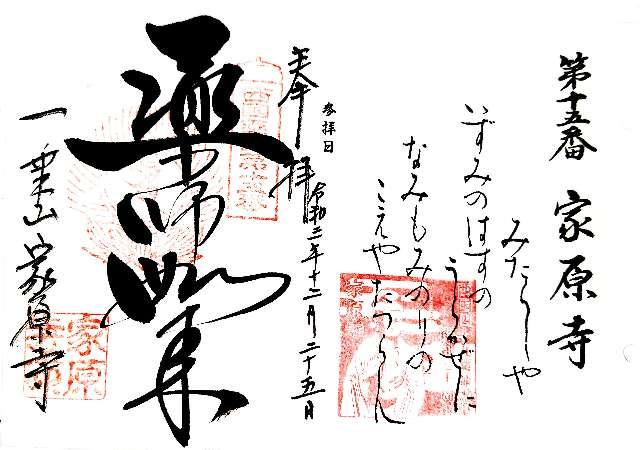 第十五番 家原寺
みたらしや
いずみのはすの
うらかぜに
なみもみのりの
こえやたつらん
参拝日
令和三年十二月二十五日
奉拝
薬師如来
一乗山 家原寺
家原寺